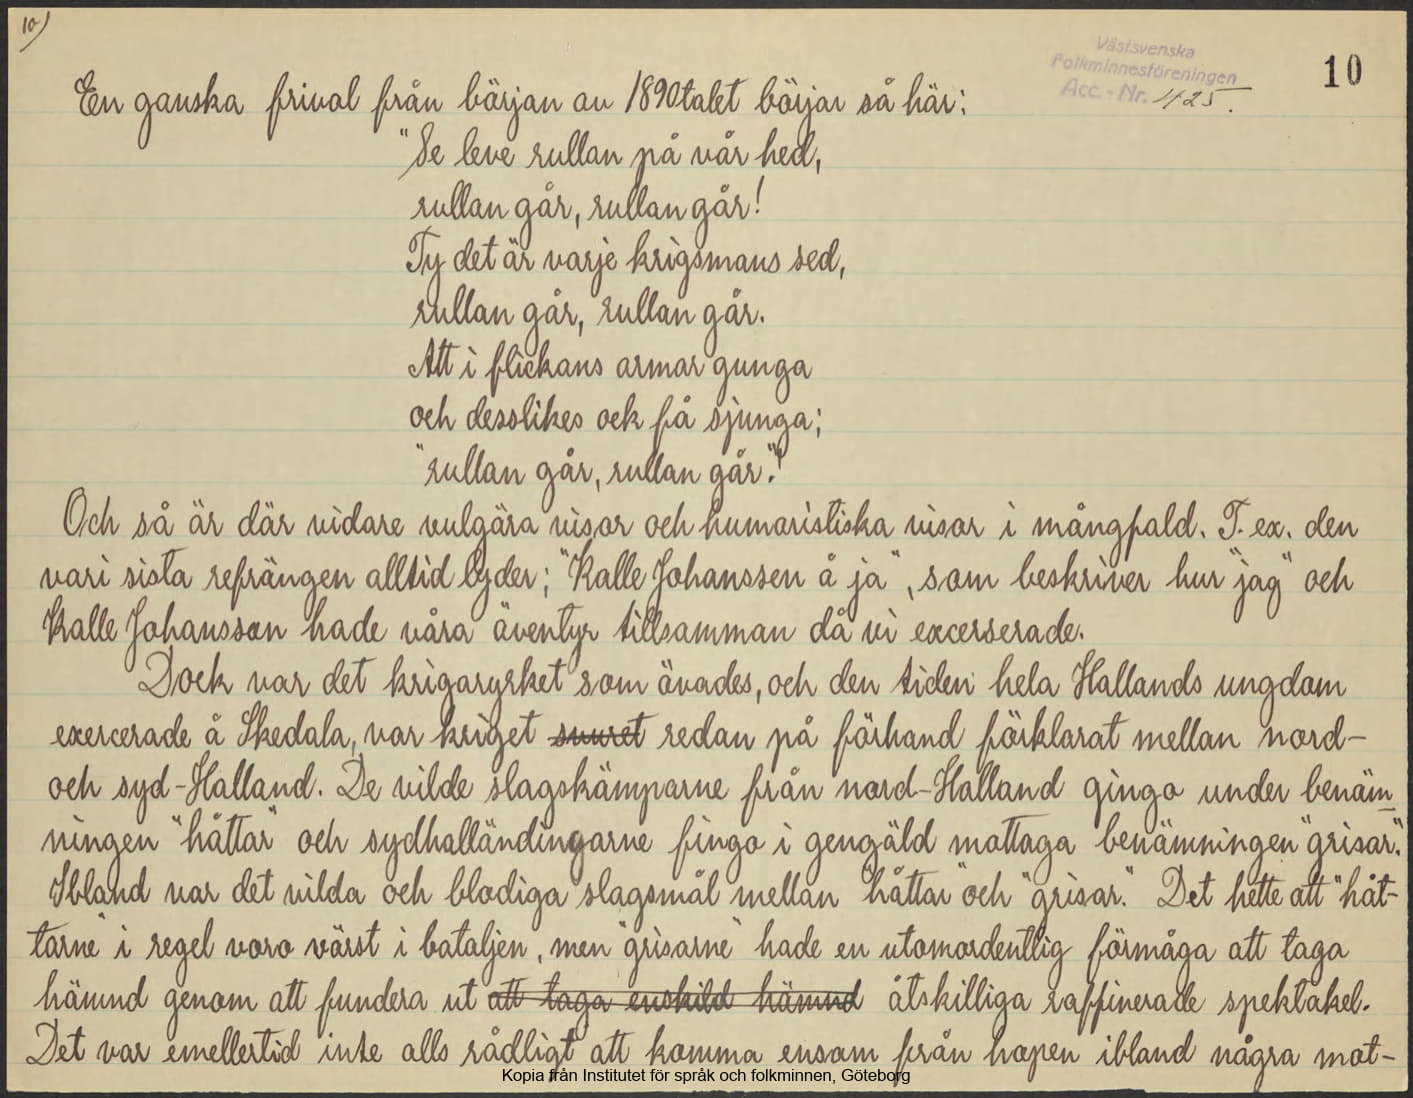 10)
Västsvenska
Folkminnesföreningen
Acc.-Nr. 425.
10
En ganska frivol från början av 1890talet börjar så här:
"Se leve rullan på vår hed,
rullan går, rullan går!
Ty det är varje krigsmans sed,
rullan går, rullan går.
Att i flickans armar gunga
och desslikes ock få sjunga;
"rullan går, rullan går"!
Och så är där vidare vulgära visor och humoristiska visor i mångfald. T. ex. den
vari sista refrängen alltid lyder; "Kalle Johanssen å ja", som beskriver hur "jag" och
Kalle Johansson hade våra äventyr tillsamman då vi excerserade.
Dock var det krigaryrket som övades, och den tiden hela Hallands ungdom
exercerade å Skedala, var kriget snuret redan på förhand förklarat mellan nord-
och syd-Halland. De vilde slagskämparne från nord-Halland gingo under benäm-
ningen "håttar" och sydhalländingarne fingo i gengäld mottaga benämningen "grisar".
Ibland var det vilda och blodiga slagsmål mellan "håttar" och "grisar." Det hette att "håt-
tarne" i regel voro värst i bataljen, men "grisarne" hade en utomordentlig förmåga att taga
hämnd genom att fundera ut att taga enskild hämnd åtskilliga raffinerade spektakel.
Det var emellertid inte alls rådligt att komma ensam från hopen ibland några mot-
Kopia från Institutet för språk och folkminnen, Göteborg